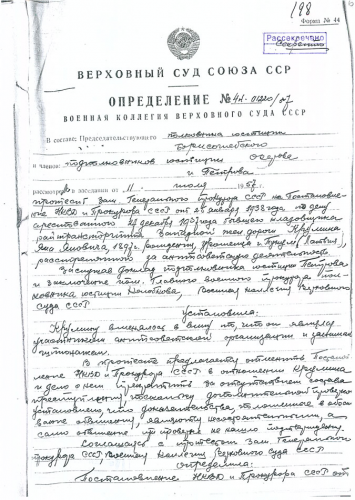 198
Форма № 44
Рассекречено
Секретно
ВЕРХОВНЫЙ СУД СОЮЗА ССР
ОПРЕДЕЛЕНИЕ № 4н-01220/57
ВОЕННАЯ КОЛЛЕГИЯ ВЕРХОВНОГО СУДА СССР
В составе: Председательствующего полковника юстиции
Борисоглебского
и членов: подполковников юстиции
и Петрова
рассмотрев в заседании от 11 июля 1957 г.
протест Зам. Генерального Прокурора СССР на Постановле-
ние НКВД и Прокурора СССР от 25 января 1938 года по делу
арестованного декабря 1937 года бывшего кладовщика
Западной жел дороги Круминa
Яна Яновича, 1897 г. рождения, уроженца Латвии,
расстрелянного за антисоветскую деятельность
Заслушав доклад подполковника юстиции Петрова
и заключение пом. Главного военного Прокурора пол-
ковника юстиции Военная коллегия Верховного
суда СССР
установила:
Крумину вменялось в вину то, что он являлся
участником антисоветской организации и занимался
шпионажем.
В протесте предлагается отменить Постанов-
ление НКВД и Прокурора СССР в отношении Крумина
и дело о нем прекратить за отсутствием состава
преступления, поскольку дополнительной проверкой
установлено, что доказательства, положенные в осно-
ву обвинения, являются несостоятельными, а
само обвинение при проверке не нашло подтверждения.
Соглашаясь с протестом Зам. Генерального
Прокурора СССР, Военная коллегия Верховного суда СССР
определила:
Постановление НКВД и Прокурора СССР от